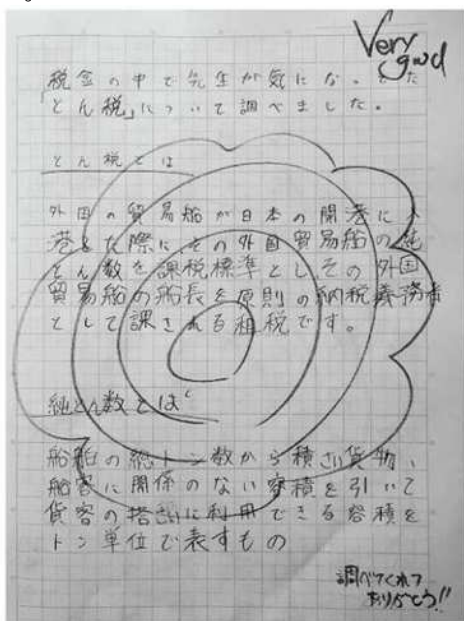 Very
good
税金の中で先生が気になった
「とん税」について調べました。
とん税とは
外国の貿易船が日本の開港に入
港した際にその外国貿易船の純
とん数を課税標準としその外国
貿易船の船長を原則の納税義務者
として課される租税です。
純とん数とは
船舶の総トン数から積さい貨物、
船客に関係のない容積を引いて
貨客の搭さいに利用できる容積を
トン単位で表すもの
調べてくれて
ありがとう!!